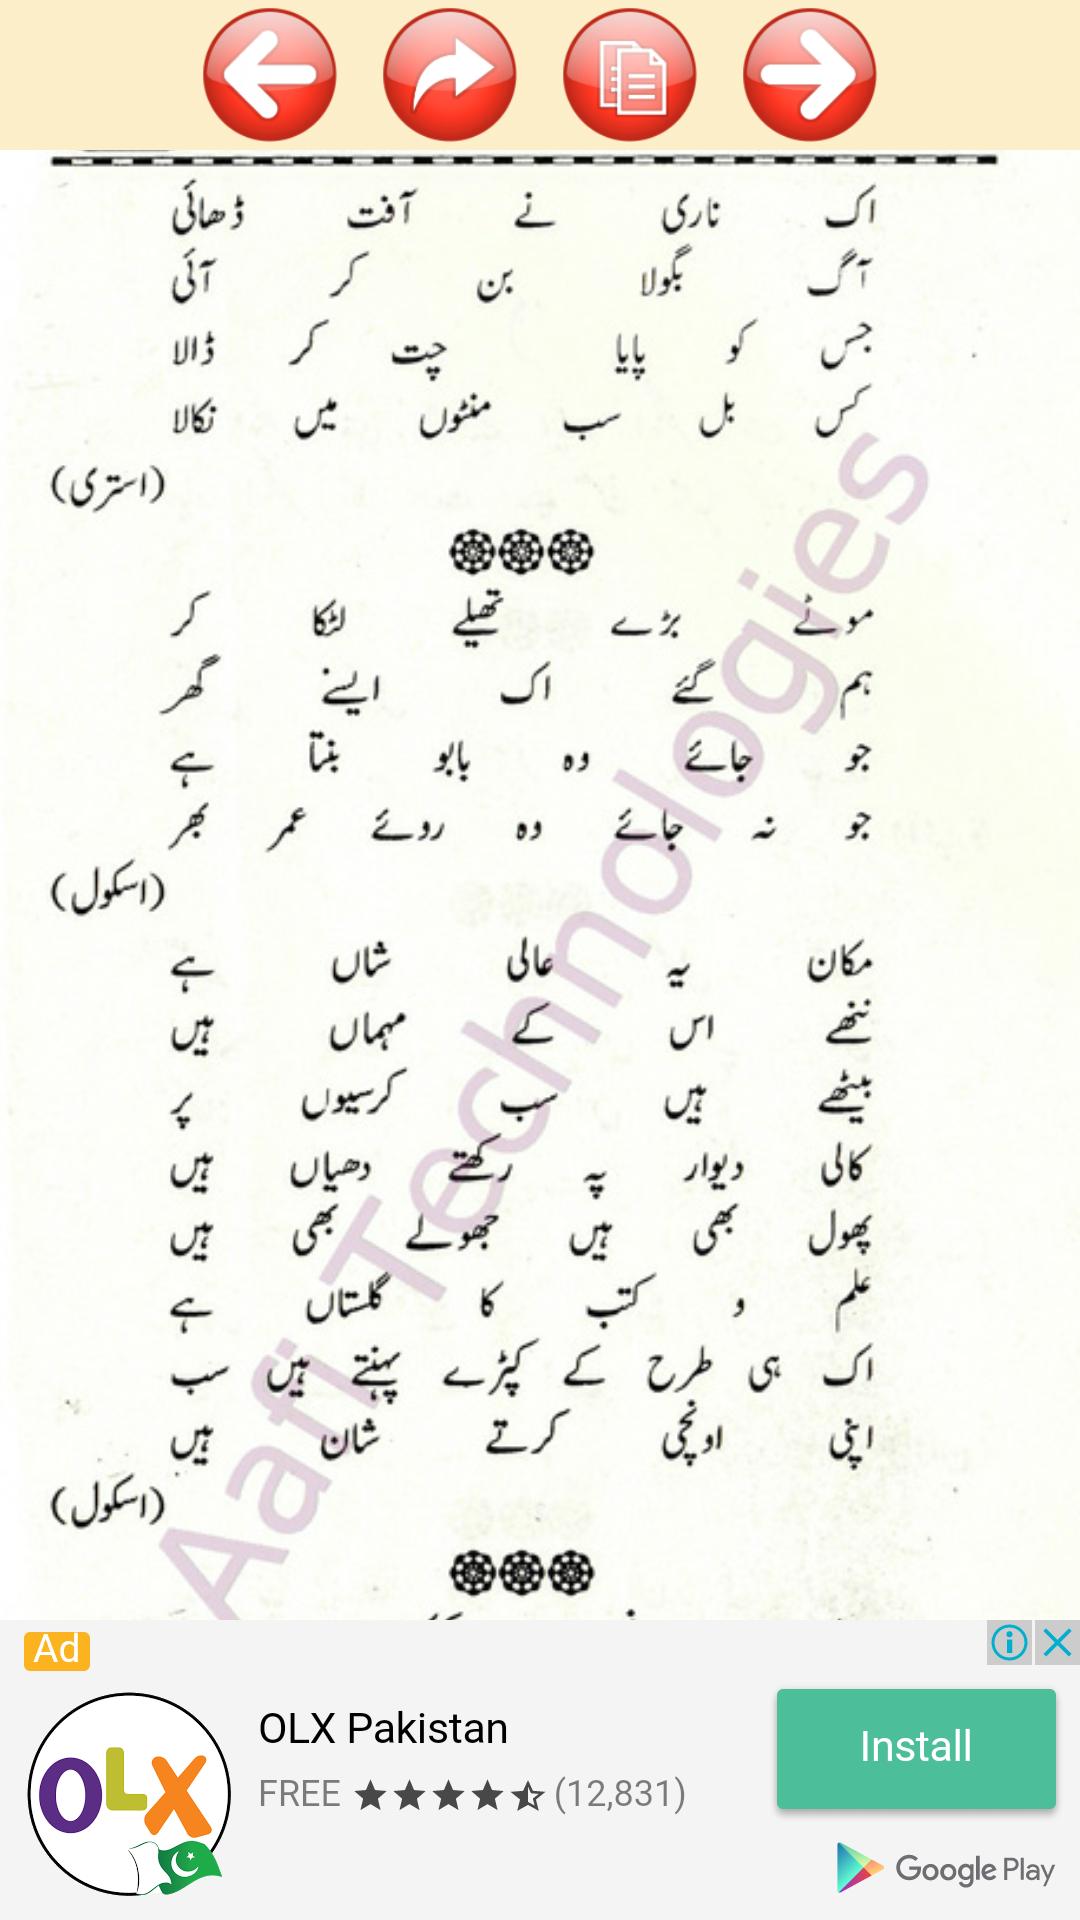 اک ناری نے آفت ڈھائی
آگ بگولا بن کر آئی
جس کو پایا چت کر ڈالا
کس بل سب منٹوں میں نکالا
(استری)
موٹے بڑے تھیلے لٹکا کر
ہم گئے اک ایسے گھر
جو جائے وہ بابو بنتا ہے
جو نہ جائے وہ روئے عمر بھر
(اسکول)
مکان یہ عالی شاں ہے
ننھے اس کے مہماں ہیں
بیٹھے ہیں سب کرسیوں پر
کالی دیوار پہ رکھتے دھیاں ہیں
پھول بھی ہیں جھولے بھی ہیں
علم و کتب کا گلستاں ہے
اک ہی طرح کے کپڑے پہنتے ہیں سب
اپنی اونچی کرتے شان ہیں
(اسکول)
Aafi Technologies
Ad
OLX Pakistan
FREE (12,831)
Install
OLX
Google Play